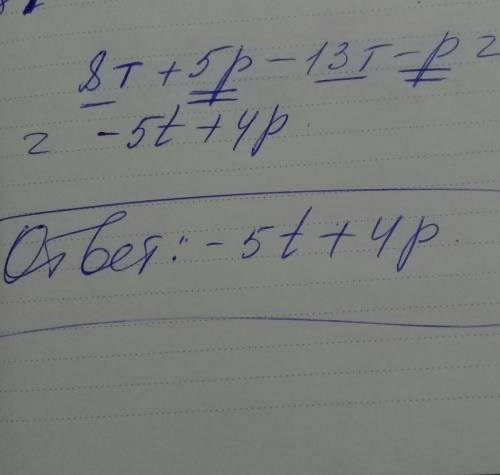 8т + 5p - 13т - p =
= - 5t + 4p
Ответ: - 5t + 4p